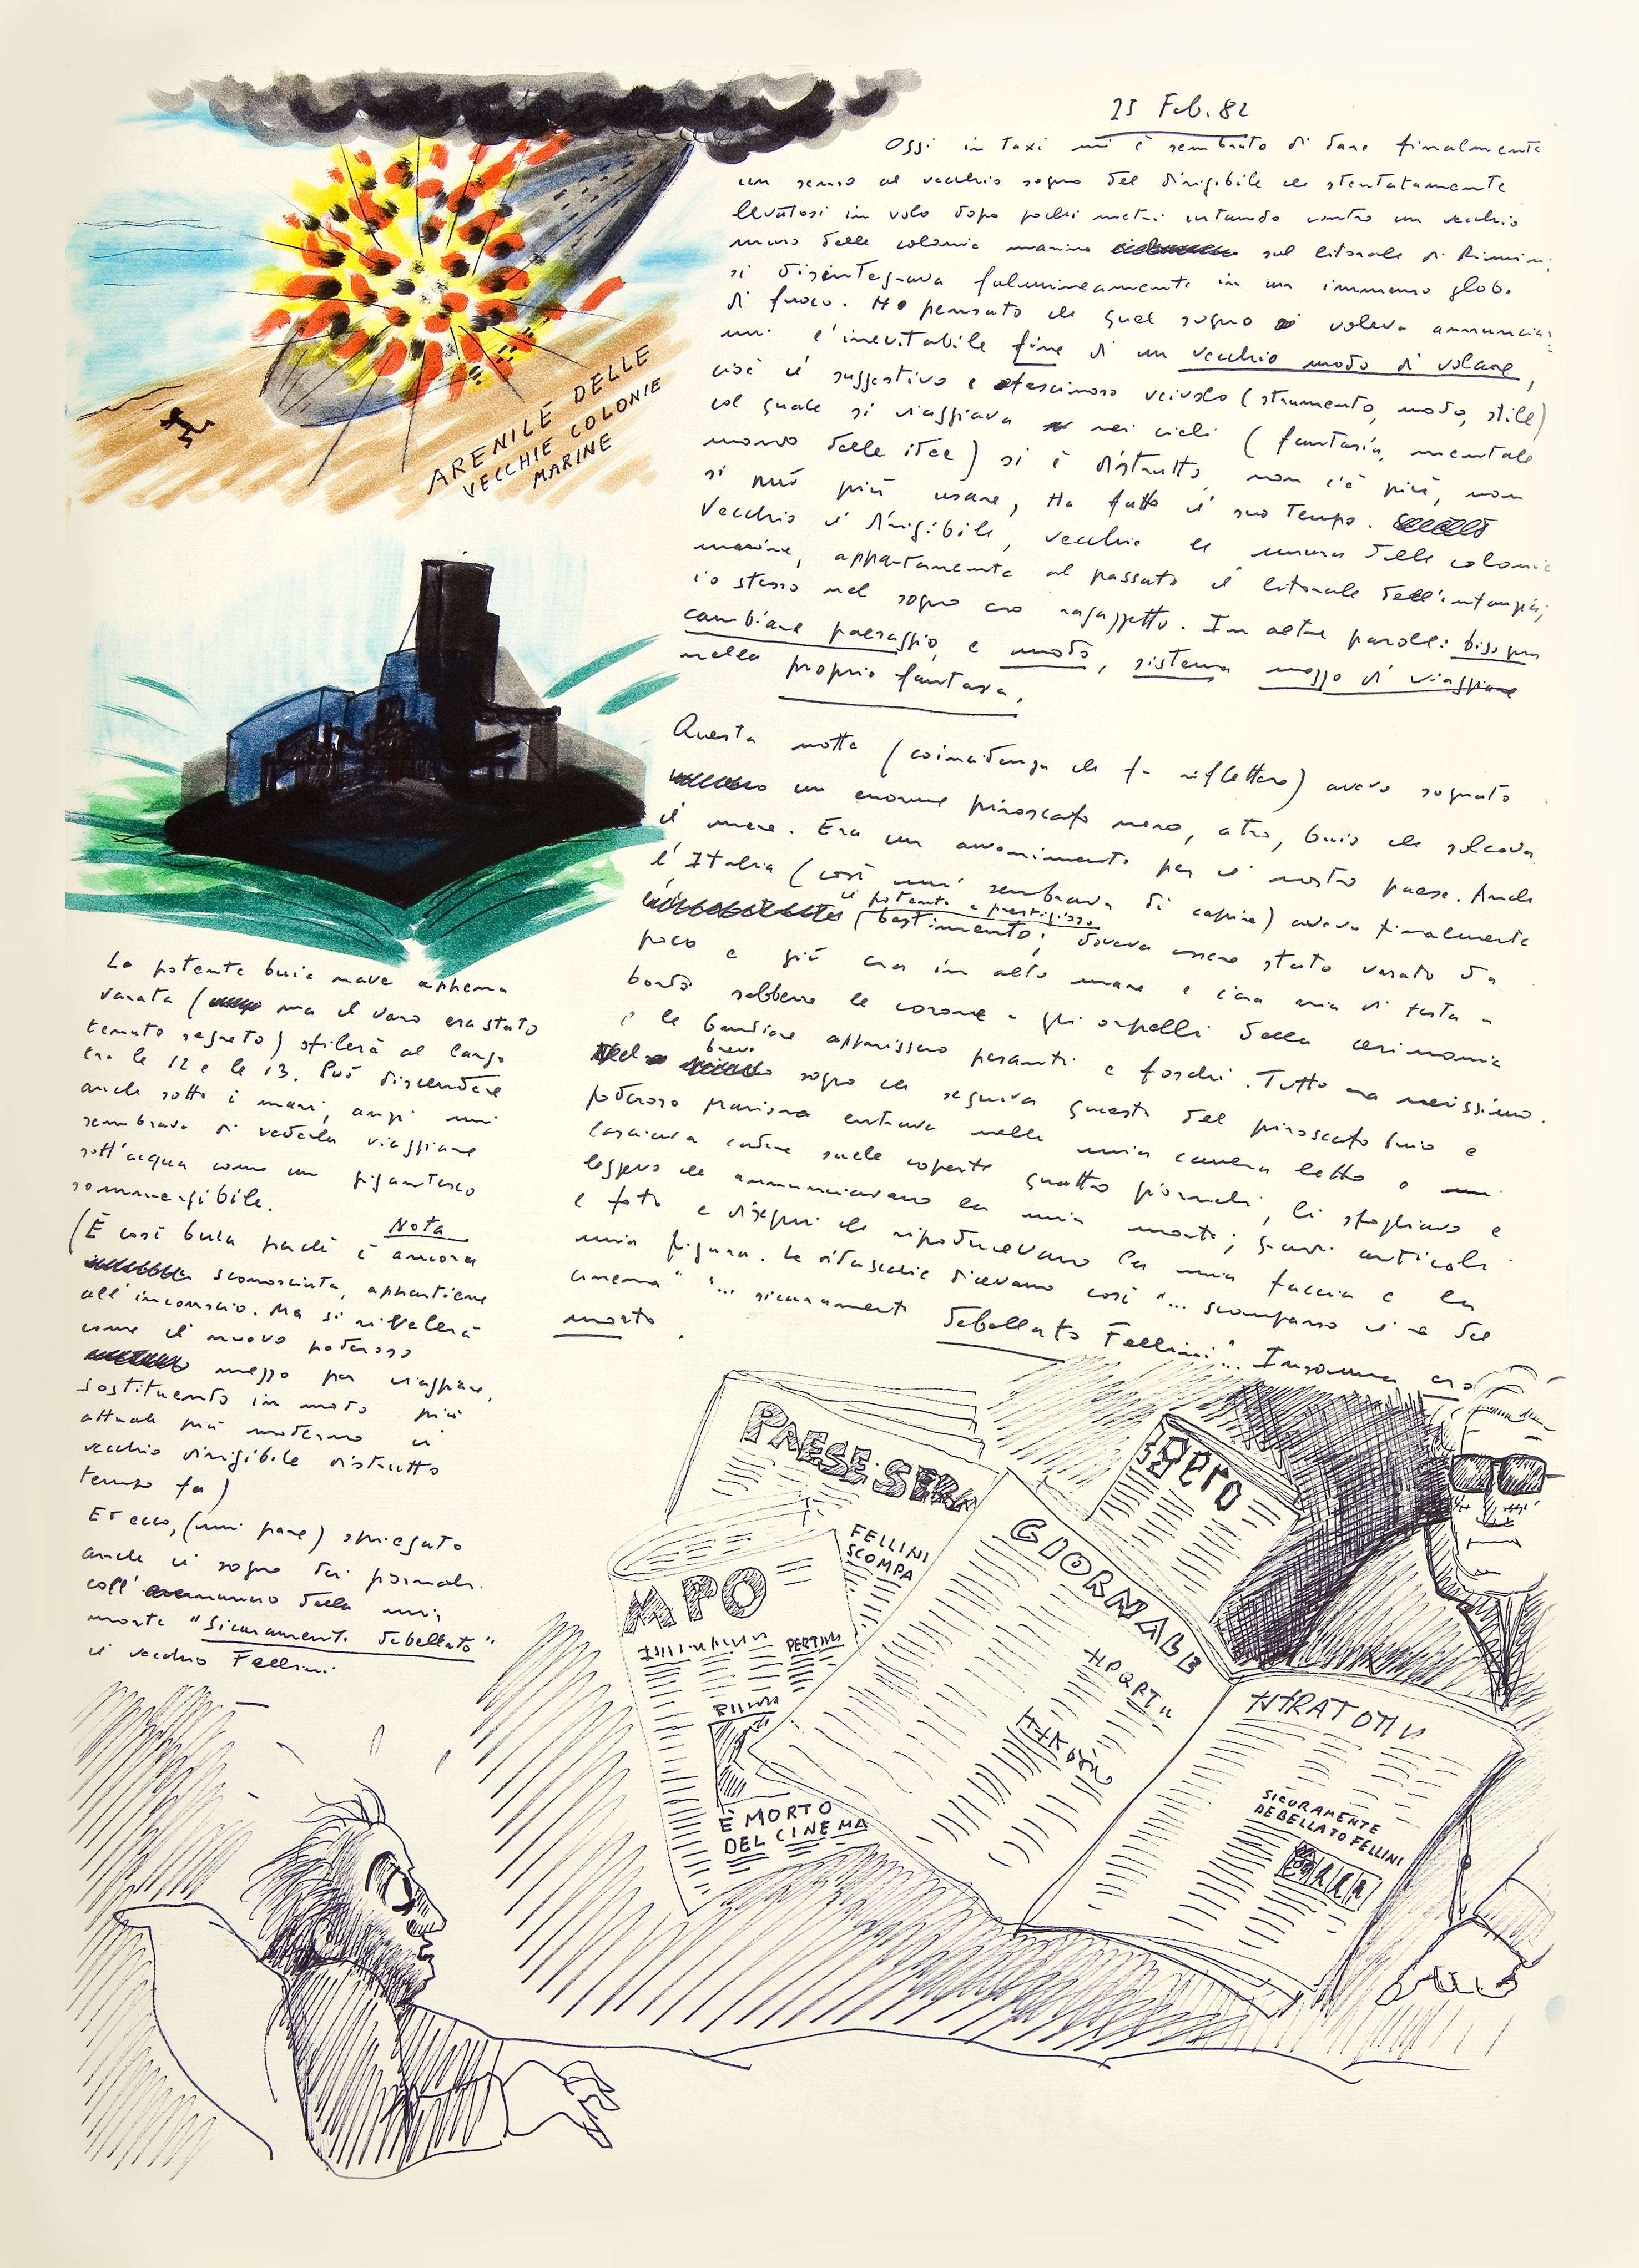 25 Feb. 82
Oggi in taxi mi è sembrato di dare finalmente
un senso al vecchio sogno del dirigibile che stentatamente
levatosi in volo dopo pochi metri urtando contro un vecchio
muro delle colonie marine sul litorale di Rimini
si disintegrava fulmineamente in un immenso globo
di fuoco. Ho pensato che quel sogno voleva annunciar=
mi l'inevitabile fine di un vecchio modo di volare,
cioè il suggestivo e fascinoso veivolo (strumento, modo, stile)
col quale si viaggiava nei cieli (fantasia, mentale
mondo delle idee) si è distrutto, non c'è più, non
si può più usare, Ha fatto il suo tempo.
Vecchio il dirigibile, vecchie le mura delle colonie
marine, appartenente al passato il litorale dell'infanzia;
io stesso nel sogno ero ragazzetto. In altre parole: bisogna
cambiare paesaggio, e modo, sistema mezzo di viaggiare
nella propria fantasia.
Questa notte (coincidenza che fa riflettere) avevo sognato
un enorme piroscafo nero, atro, buio che solcava
il mare. Era un avvenimento per il nostro paese. Anche
l'Italia (così mi sembrava di capire) aveva finalmente
il potente e prestigioso
bastimento; doveva essere stato varato da
poco e già era in alto mare e c'era aria di festa a
bordo sebbene le corone e gli orpelli della cerimonia
e le bandiere apparissero pesanti e foschi. Tutto era nerissimo.
Nel breve sogno che seguiva questo del piroscafo buio e
poderoso Mariona entrava nella mia camera letto e
lasciava cadere sulle coperte quattro giornali, li sfogliavo e
leggevo che annunciavano la mia morte; grandi articoli
e foto e disegni che riproducevano la mia faccia e la
mia figura. Le didascalie dicevano così "... scomparso il re del
cinema" "... sicuramente debellato Fellini"... Insomma ero
morto.
ARENILE DELLE
VECCHIE COLONIE
MARINE
La potente buia nave appena
varata (ma il varo era stato
tenuto segreto) sfilerà al largo
tra le 12 e le 13. Può discendere
anche sotto i mari, anzi mi
sembrava di vederla viaggiare
sott'acqua come un gigantesco
sommergibile.
Nota
(È così buia perché è ancora
sconosciuta, appartiene
all'inconscio. Ma si rivelerà
come il nuovo poderoso
mezzo per viaggiare,
sostituendo in modo più
attuale più moderno il
vecchio dirigibile distrutto
tempo fa)
Ed ecco, (mi pare) spiegato
anche il sogno dei giornali
coll'annuncio della mia
morte "Sicuramente debellato"
il vecchio Fellini
PAESE SERA
FELLINI
SCOMPA
MPO
PERTINI
È MORTO
DEL CINEMA
GIORNALE
SICURAMENTE
DEBELLATO FELLINI